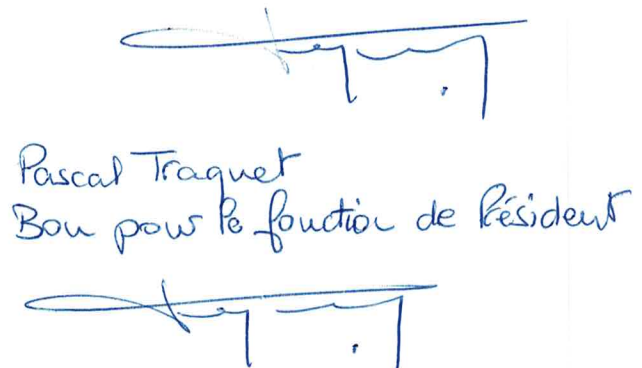 Pascal Traquet
Bon pour la fonction de Président